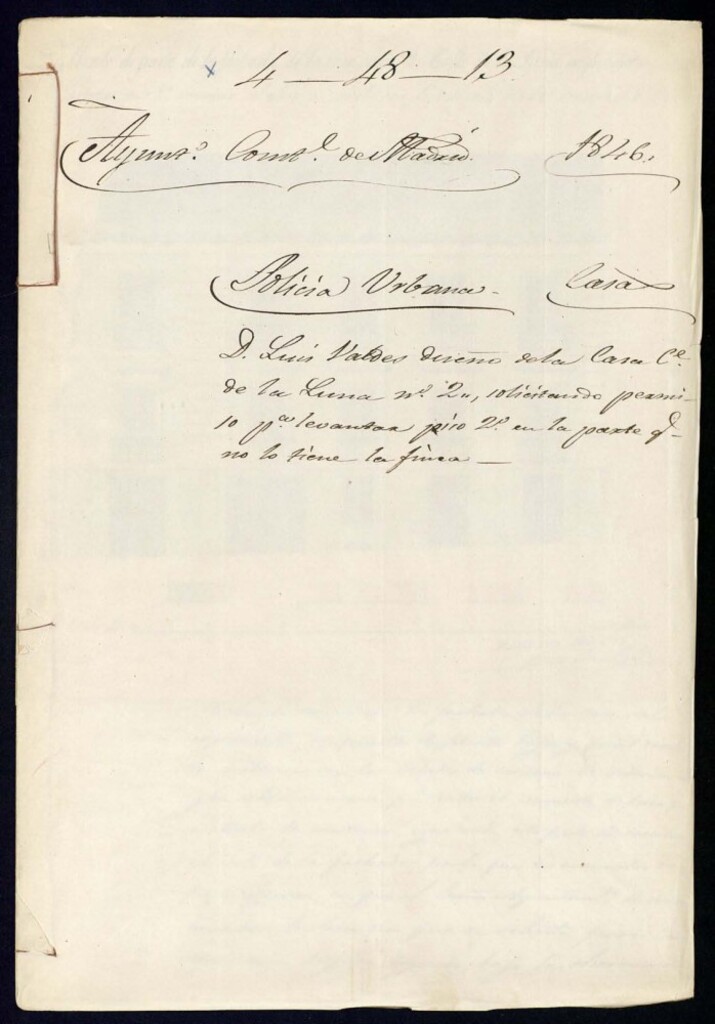 4 — 48 — 13
Ayunt.º Const.l de Madrid. 1846.
Policia Urbana. Casas
D. Luis Valdes dueño dela Casa C.e
de la Luna n.º 2,, solicitando permi-
so p.a levantar piso 2.º en la parte q.e
no lo tiene la finca —